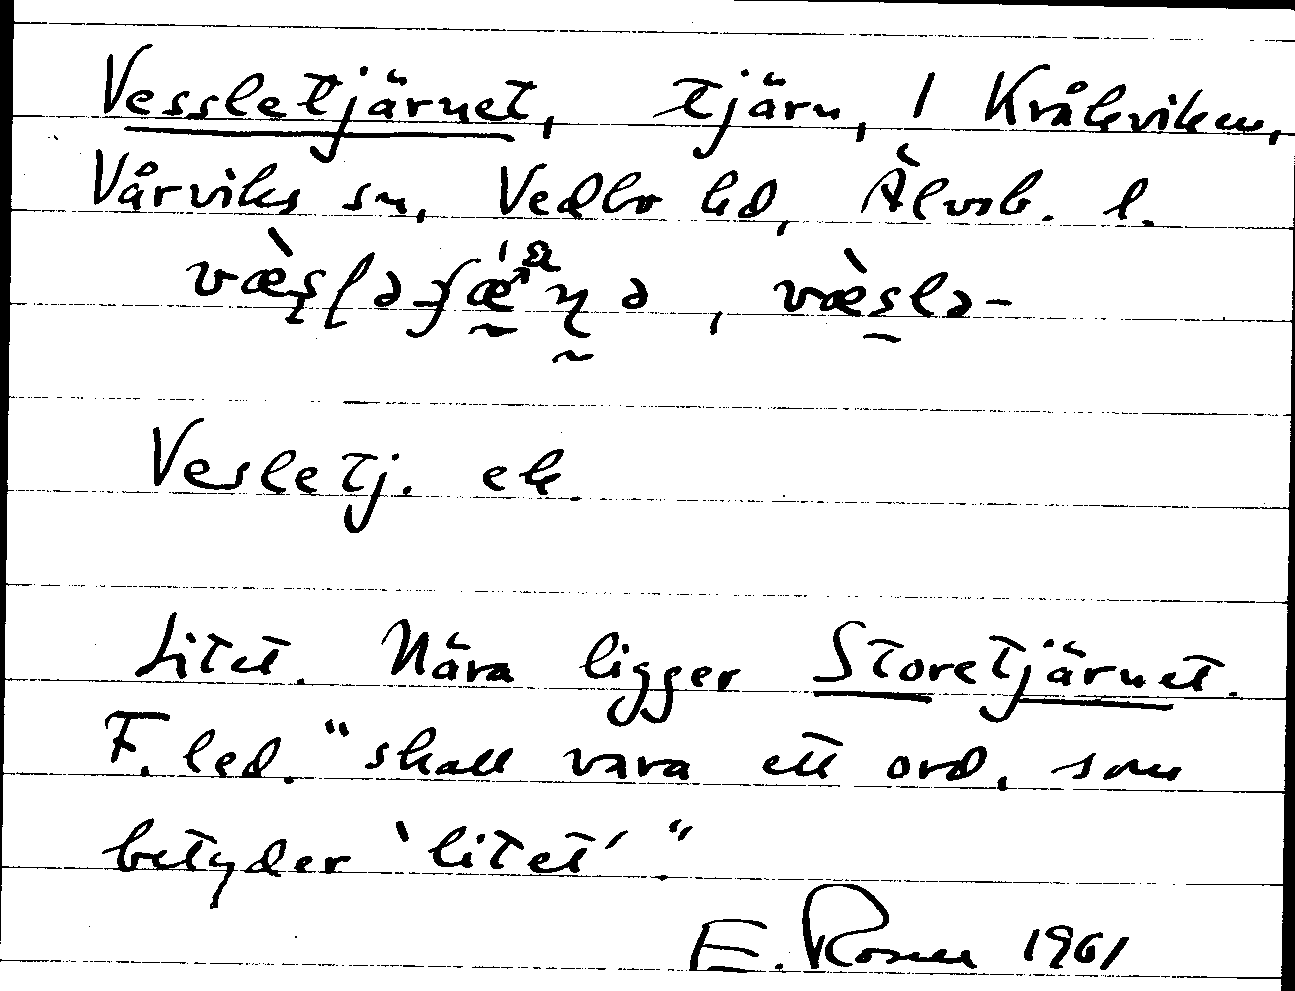 Vessletjärnet, tjärn, 1 Kråkviken,
Vårviks sn, Vedbo hd, Älvsb. l.
Vesletj. ek.
Litet. Nära ligger Storetjärnet.
F. led. "skall vara ett ord, som
betyder 'litet'."
E. Rosell 1961